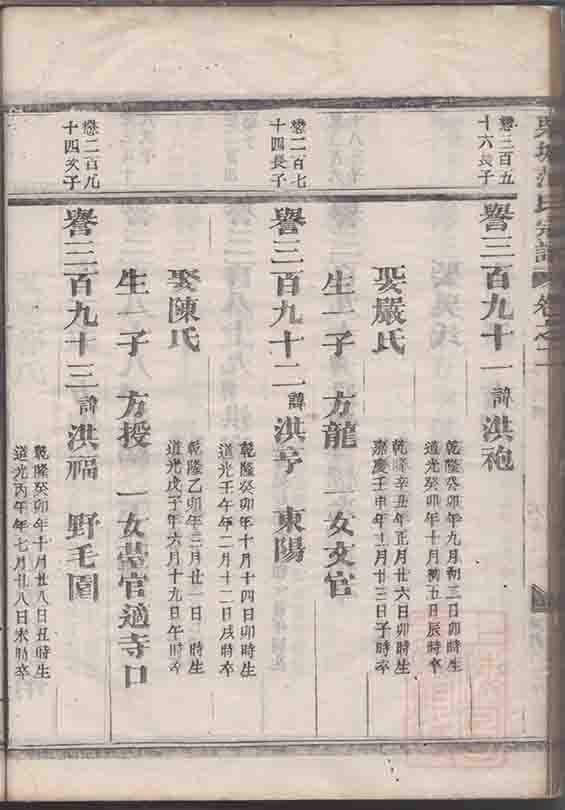 宗譜 卷之二
懋三百五
十六長子
譽三百九十一 諱 洪袍
乾隆癸卯年九月初三日卯時生
道光癸卯年十月初五日辰時卒
娶嚴氏
乾隆辛丑年正月廿六日卯時生
嘉慶壬申年三月廿三日子時卒
生一子 方龍 一女文官
懋二百七
十四長子
譽三百九十二 諱 洪亨 東陽
乾隆癸卯年十月十四日卯時生
道光壬午年二月十二日戌時卒
娶陳氏
乾隆乙卯年三月廿一日 時生
道光戊子年六月十九日午時卒
生一子 方授 一女臺官適寺口
懋二百九
十四次子
譽三百九十三 諱 洪福 野毛園
乾隆癸卯年十月廿八日丑時生
道光丙午年七月廿八日未時卒